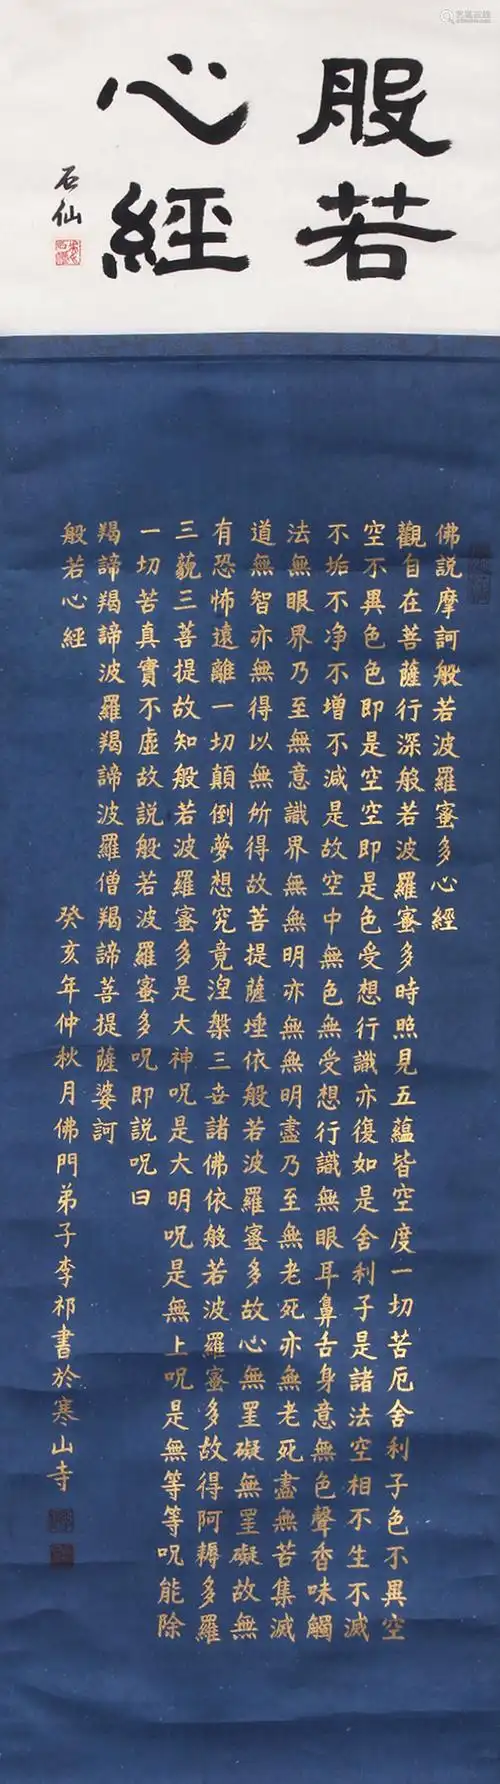 般若
心經
石仙
佛説摩訶般若波羅蜜多心經
觀自在菩薩行深般若波羅蜜多時照見五蘊皆空度一切苦厄舍利子色不異空
空不異色色即是空空即是色受想行識亦復如是舍利子是諸法空相不生不滅
不垢不净不增不減是故空中無色無受想行識無眼耳鼻舌身意無色聲香味觸
法無眼界乃至無意識界無無明亦無無明盡乃至無老死亦無老死盡無苦集滅
道無智亦無得以無所得故菩提薩埵依般若波羅蜜多故心無罣礙無罣礙故無
有恐怖遠離一切顛倒夢想究竟湼槃三世諸佛依般若波羅蜜多故得阿耨多羅
三藐三菩提故知般若波羅蜜多是大神呪是大明呪是無上呪是無等等呪能除
一切苦真實不虛故説般若波羅蜜多呪即説呪曰
羯諦羯諦波羅羯諦波羅僧羯諦菩提薩婆訶
般若心經
癸亥年仲秋月佛門弟子李祁書於寒山寺